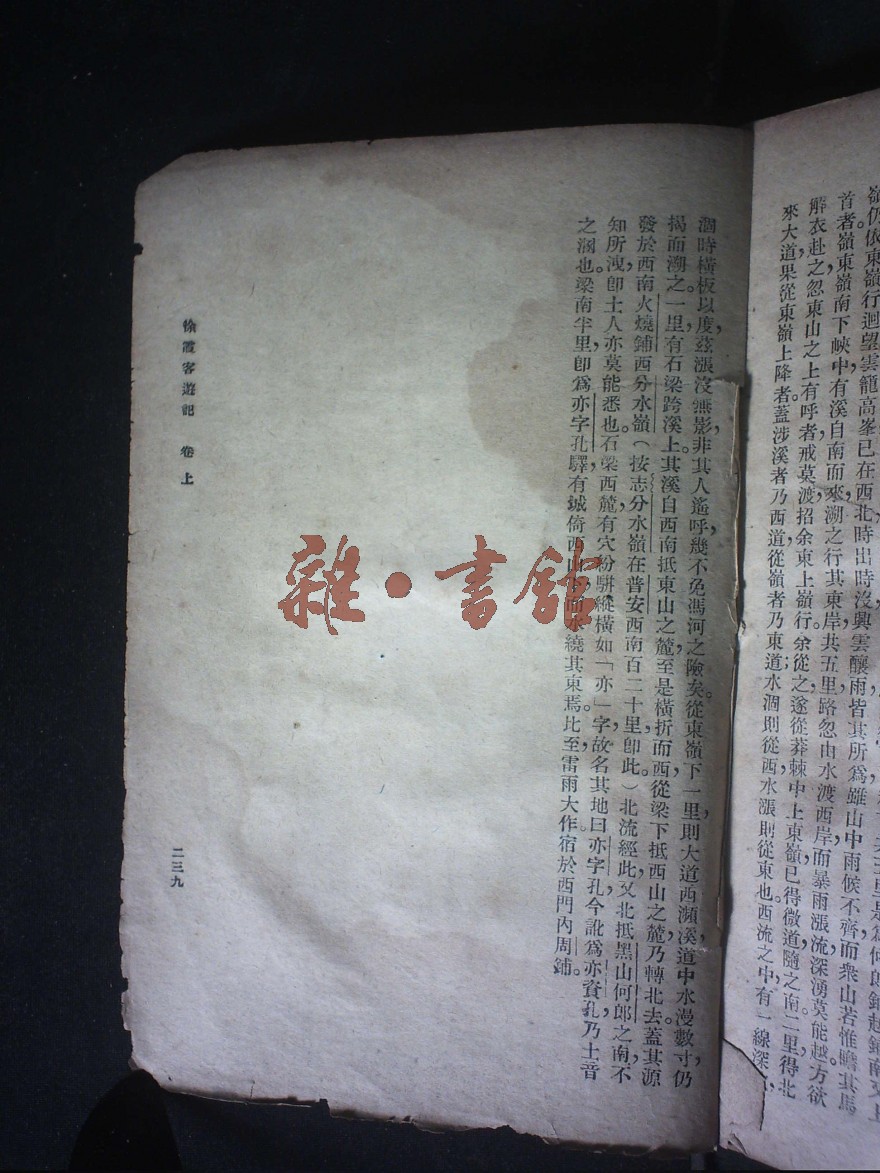 嶺仍依東嶺行迴望雲龍高峯已在西北時出時沒興雲釀雨皆其所爲雖山中雨候不齊而衆山若惟瞻其馬
首者嶺東嶺南下峽中有溪自南而來溯之行其東岸共五里路忽由水渡西岸而暴雨漲流深湧莫能越方欲
解衣赴之忽東山之上有呼者戒莫渡招余東上嶺行。余從之遂從莽棘中上東嶺已得微道隨之南二里得北
來大道果從東嶺上降者。蓋涉溪者乃西道從嶺者乃東道水涸則從西水漲則從東也。西流之中有一線深
涸時橫板以度茲漲沒無影非其人遙呼幾不免馮河之險矣。從東嶺下一里則大道西瀕溪道中水漫數寸仍
揭而溯之。一里有石梁跨溪上。其溪自西南抵東山之麓至是橫折而西從梁下抵西山之麓乃轉北去。蓋其源
發於西南火燒鋪西分水嶺（按志分水嶺在普安西南百二十里卽此。）北流經此又北抵黑山何郎之南不
知所洩卽土人亦莫能悉也。石梁西麓有穴紛駢縱橫如「亦」字故名其地曰亦字孔今訛爲亦資孔乃土音
之溷也。梁南半里卽爲亦字孔驛有城倚西山下而水繞其東焉。比至雷雨大作宿於西門內周鋪。
徐霞客遊記 卷上
二三九
雜·書館